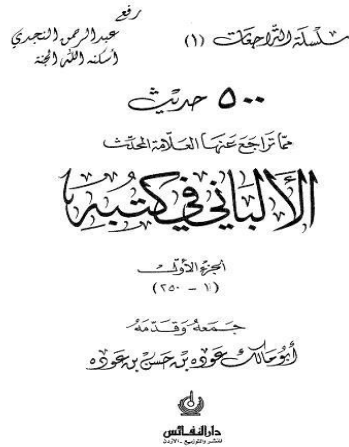 رفع
عبد الرحمن النجدي
أسكنه الله الجنة
سلسلة التراجعات (١)
٥٠٠ حديث
مما تراجع عنها العلامة المحدث
الألباني في كتبه
الجزء الأول
(١ - ٢٥٠)
جمعه وقدمه
أبو مالك عوده بن حسن بن عوده
دار النفائس
للنشر والتوزيع - الأردن